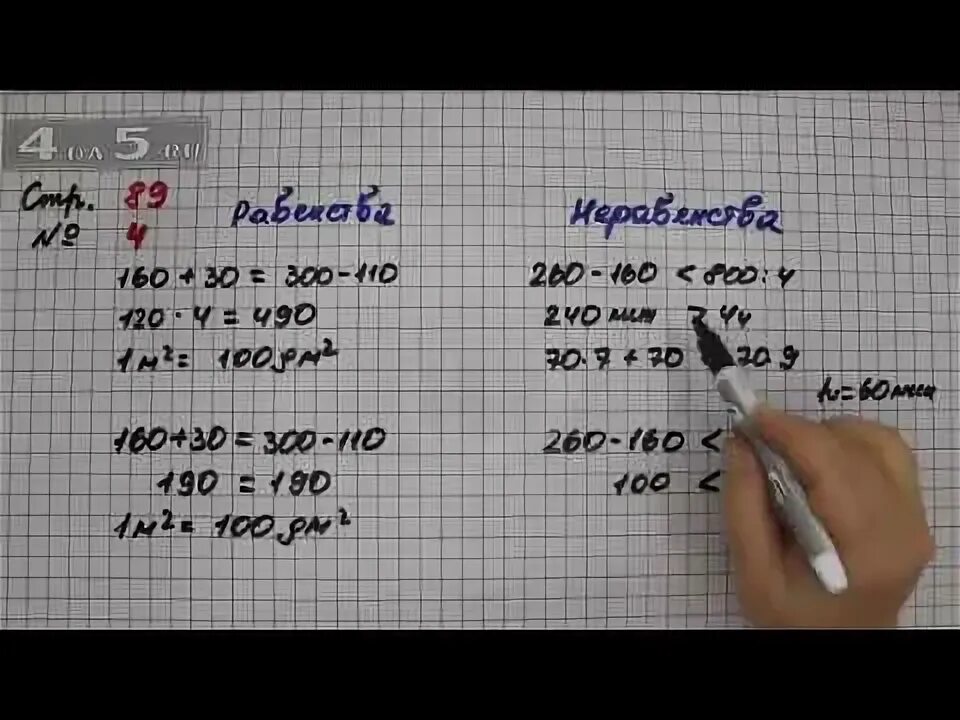 4 на 5 .RU
Стр. 89
№ 4
Равенства
160 + 30 = 300 - 110
120 · 4 = 490
1 м² = 100 дм²
160 + 30 = 300 - 110
190 = 190
1 м² = 100 дм²
Неравенства
260 - 160 < 800 : 4
240 мин 4ч
70 · 7 + 70 70 · 9
= 60 мин
260 - 160 <
100 <